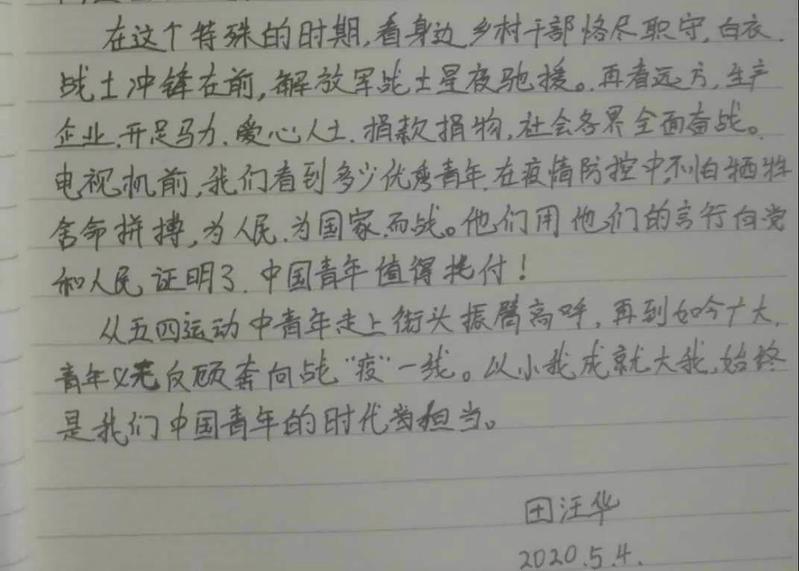 在这个特殊的时期,看身边乡村干部恪尽职守,白衣
战士冲锋在前,解放军战士星夜驰援。再看远方,生产
企业.开足马力.爱心人士.捐款捐物,社会各界全面奋战。
电视机前,我们看到多少优秀青年.在疫情防控中,不怕牺牲
舍命拼搏,为人民.为国家.而战。他们用他们的言行向党
和人民证明了.中国青年值得托付!
从五四运动中青年走上街头振臂高呼,再到如今广大
青年义无反顾奔向战“疫”一线。以小我成就大我,始终
是我们中国青年的时代担当。
田汪华
2020.5.4.